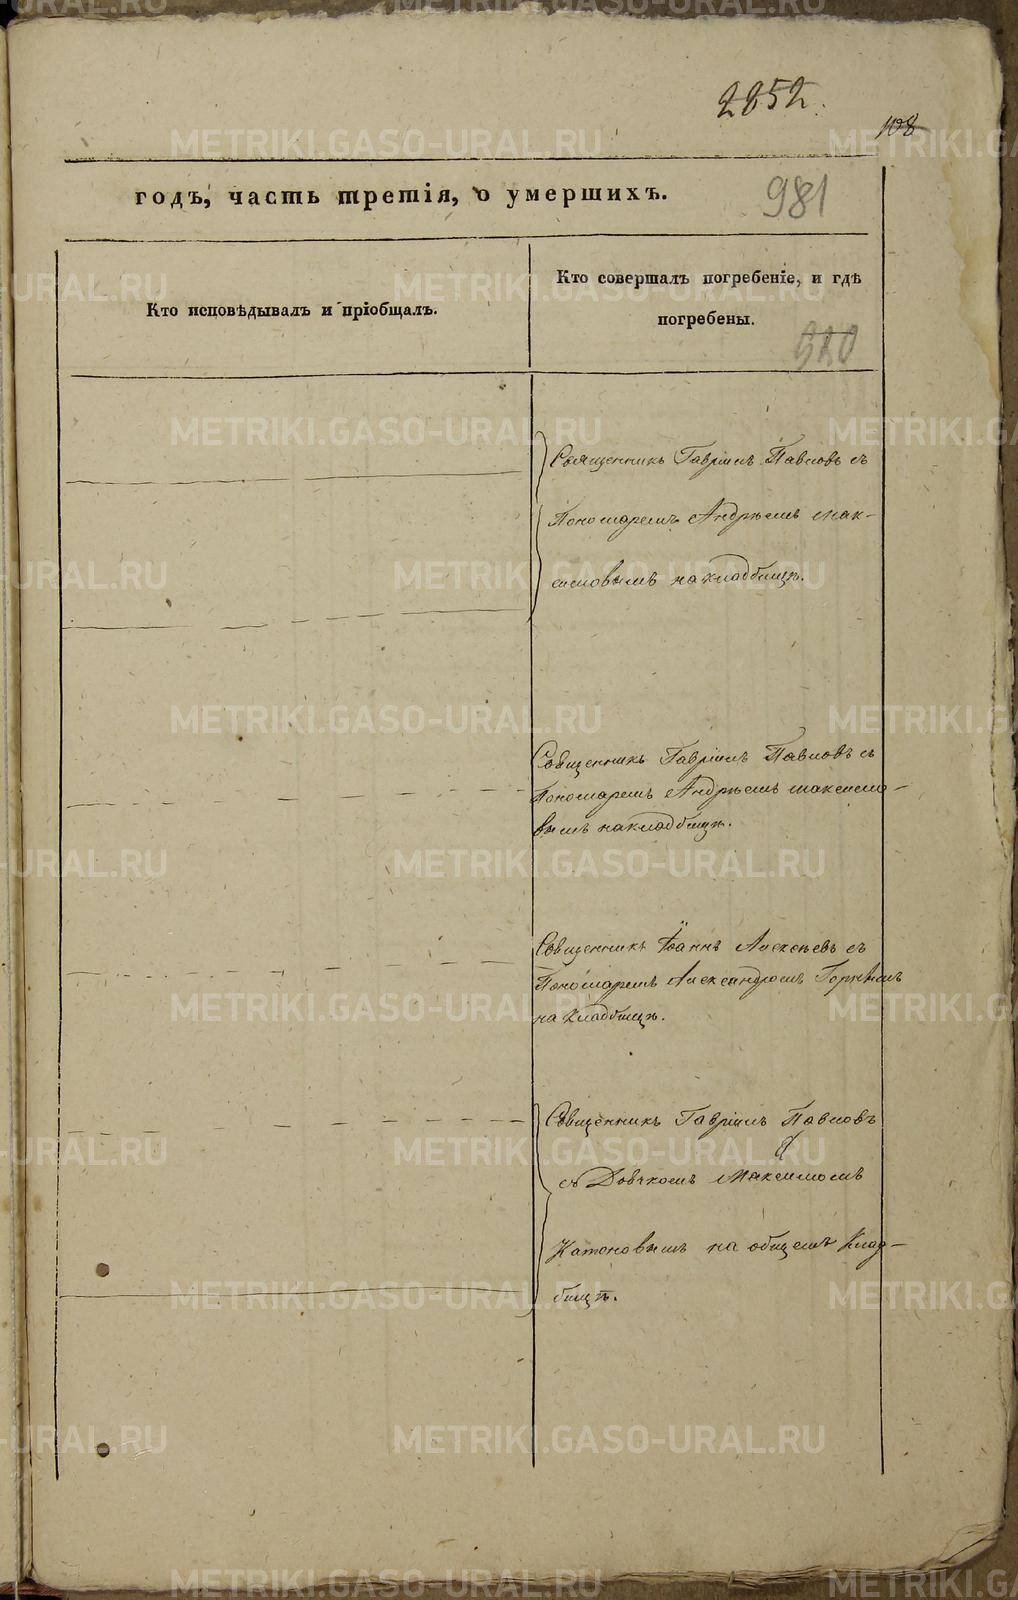 2852.
108
годъ, часть третія, о умершихъ.
981
Кто исповѣдывалъ и пріобщалъ.
Кто совершалъ погребеніе, и гдѣ
погребены.
920
Священникъ Гавріилъ Павловъ съ
Пономаремъ Андрѣемъ Мак-
симовымъ на кладбищѣ.
Священникъ Гавріилъ Павловъ съ
Пономаремъ Андрѣемъ Максимо-
вымъ на кладбищѣ.
Священникъ Іоаннъ Алексѣевъ съ
Пономаремъ Александромъ
на кладбищѣ.
Священникъ Гавріилъ Павловъ
съ Дьячкомъ Максимомъ
Катоновымъ на общемъ Клад-
бищѣ.
METRIKI.GASO-URAL.RU